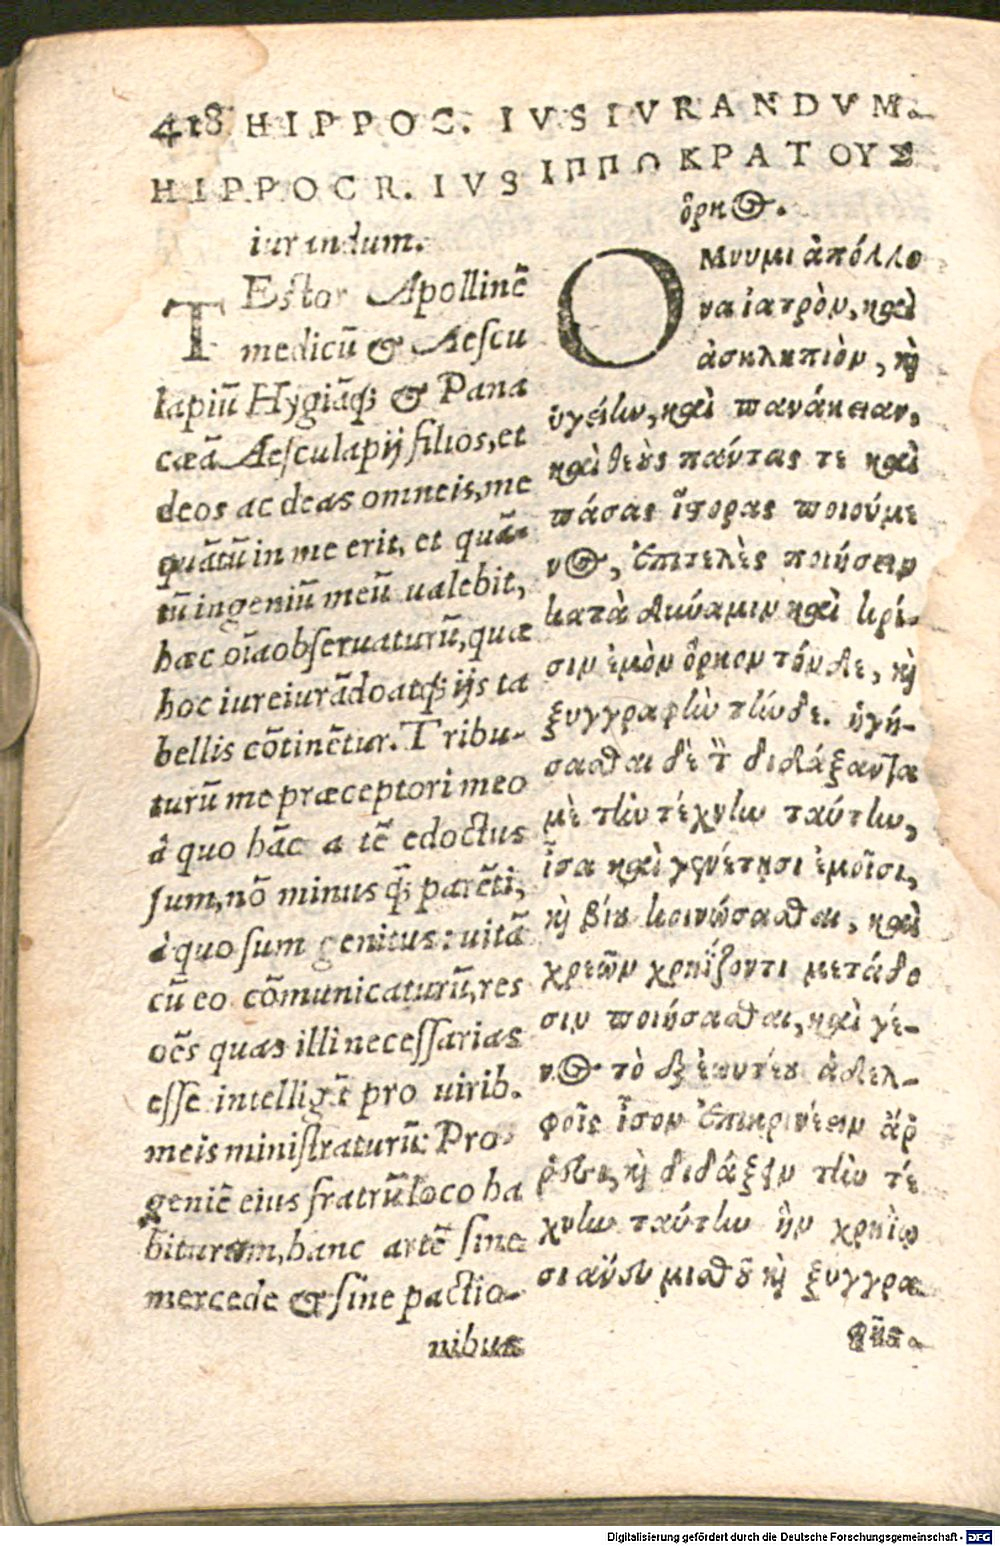 418 HIPPOC. IVSIVRANDVM.
HIPPOCR. IVS
iurandum.
TEstor Apollinē
medicū & Aescu
lapiū Hygiāq; & Pana
cæā Aesculapij filios, et
deos ac deas omneis, me
quātū in me erit, et quā-
tū ingeniū meū ualebit,
hæc oīa obseruaturū, quæ
hoc iureiurādo atq; ijs ta
bellis cōtinētur. Tribu-
turū me præceptori meo
à quo hāc a tē edoctus
sum, nō minus q̄; parēti,
à quo sum genitus: uitā
cū eo cōmunicaturū, res
oēs quas illi necessarias
esse intelligē pro uirib.
meis ministraturū. Pro-
geniē eius fratrū loco ha
biturum, hanc artē sine
mercede & sine pactio-
nibus
ΙΠΠΟΚΡΑΤΟΥΣ
ὅρκος.
ΟΜνυμι ἀπόλλο
να ἰατρὸν, καὶ
ἀσκληπιὸν, καὶ
ὑγείην, καὶ πανάκειαν,
καὶ θεοὺς πάντας τε καὶ
πάσας ἵστορας ποιούμε
νος, ἐπιτελὲς ποιήσειν
κατὰ δύναμιν καὶ κρί-
σιν ἐμὸν ὅρκον τόνδε, καὶ
ξυγγραφὴν τήνδε. ἡγή-
σασθαι δὲ τ̀ διδάξαντα
μὲ τὴν τέχνην ταύτην,
ἶσα καὶ γενέτησι ἐμοῖσι,
καὶ βίου κοινώσασθαι, καὶ
χρεῶν χρηΐζοντι μετάδο
σιν ποιήσασθαι, καὶ γέ-
νος τὸ ἐξ ἑωυτέου ἀδελ-
φοῖς ἶσον ἐπικρινέειν ἄρ
ῥεσι, καὶ διδάξειν τὴν τέ
χνην ταύτην ἢν χρηΐω
σι ἄνευ μισθοῦ καὶ ξυγγρα
φῆς.
Digitalisierung gefördert durch die Deutsche Forschungsgemeinschaft - DFG